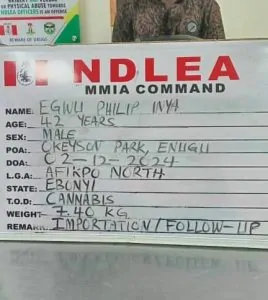 OR PHYSICAL ABUSE TOWARDS
NDLEA OFFICERS IS AN OFFENCE
BEWARE OF DRUGS
NDLEA
MMIA COMMAND
NAME: EGWU PHILIP INYA
AGE: 42 YEARS
SEX: MALE
POA: OKEYSON PARK, ENUGU
DOA: 02-12-2024
L.G.A: AFIKPO NORTH
STATE: EBONYI
T.O.D: CANNABIS
WEIGHT- 7.40 KG
REMARK: IMPORTATION/FOLLOW-UP